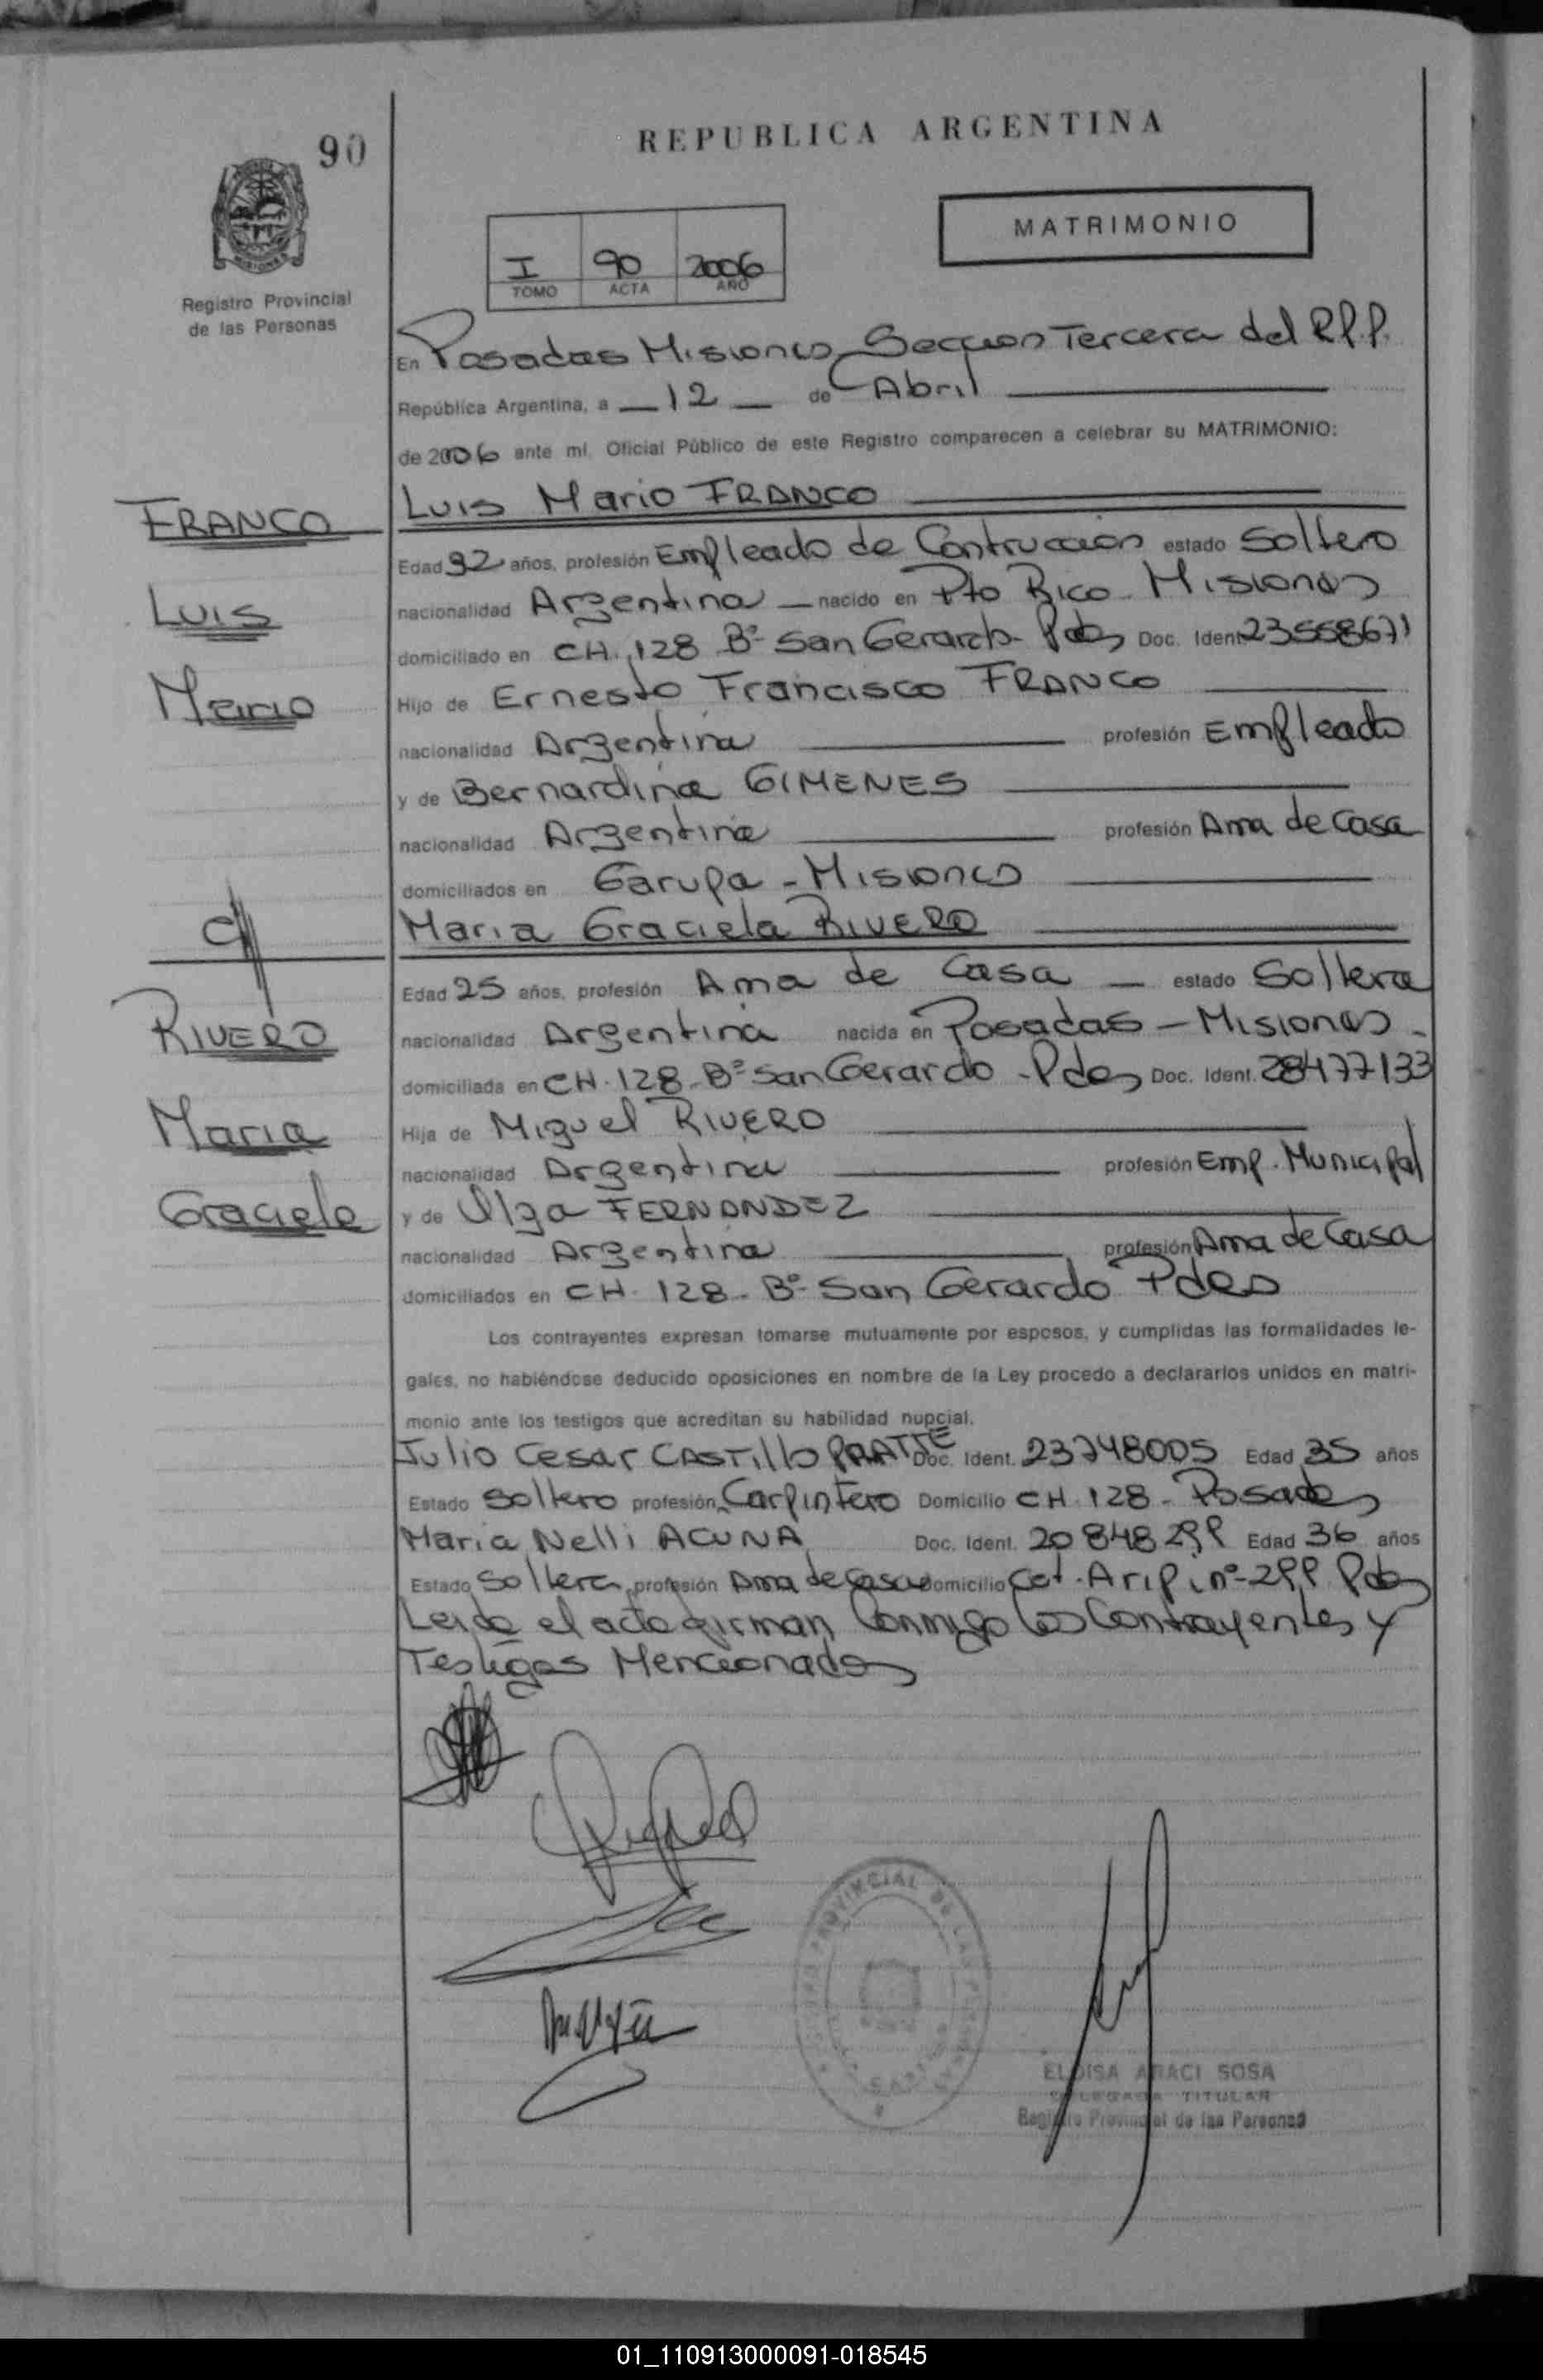 90
REPUBLICA ARGENTINA
MATRIMONIO
I 90 2006
TOMO ACTA AÑO
MISIONES
Registro Provincial
de las Personas
En Posadas Misiones Seccion Tercera del R.P.P.
República Argentina, a 12 de Abril
de 2006 ante mí, Oficial Público de este Registro comparecen a celebrar su MATRIMONIO:
FRANCO
Luis
Mario
Luis Mario FRANCO
Edad 32 años, profesión Empleado de Contruccion estado Soltero
nacionalidad Argentina nacido en Pto Rico - Misiones
domiciliado en CH. 128 Bº San Gerardo - Pdas Doc. Ident. 23558671
Hijo de Ernesto Francisco FRANCO
nacionalidad Argentina profesión Empleado
y de Bernardina GIMENES
nacionalidad Argentina profesión Ama de Casa
domiciliados en Garupa - Misiones
RIVERO
Maria
Graciela
Maria Graciela RIVERO
Edad 25 años, profesión Ama de Casa estado Soltera
nacionalidad Argentina nacida en Posadas - Misiones -
domiciliada en CH. 128 - Bº San Gerardo - Pdas Doc. Ident. 28477133
Hija de Miguel RIVERO
nacionalidad Argentina profesión Emp. Municipal
y de Olga FERNANDEZ
nacionalidad Argentina profesión Ama de Casa
domiciliados en CH. 128 - Bº San Gerardo Pdas
Los contrayentes expresan tomarse mutuamente por esposos, y cumplidas las formalidades le-
gales, no habiéndose deducido oposiciones en nombre de la Ley procedo a declararlos unidos en matri-
monio ante los testigos que acreditan su habilidad nupcial.
Julio Cesar CASTILLO PRATTE Doc. Ident. 23748005 Edad 35 años
Estado Soltero profesión Carpintero Domicilio CH. 128 - Posadas
Maria Nelli ACUNA Doc. Ident. 20848299 Edad 36 años
Estado Soltera profesión Ama de Casa Domicilio Cat. Aripi nº 299 Pdas
Leida el acta firman Conmigo los Contrayentes y
Testigos Mencionados
ELOISA ARACI SOSA
DELEGADA TITULAR
Registro Provincial de las Personas
01_110913000091-018545